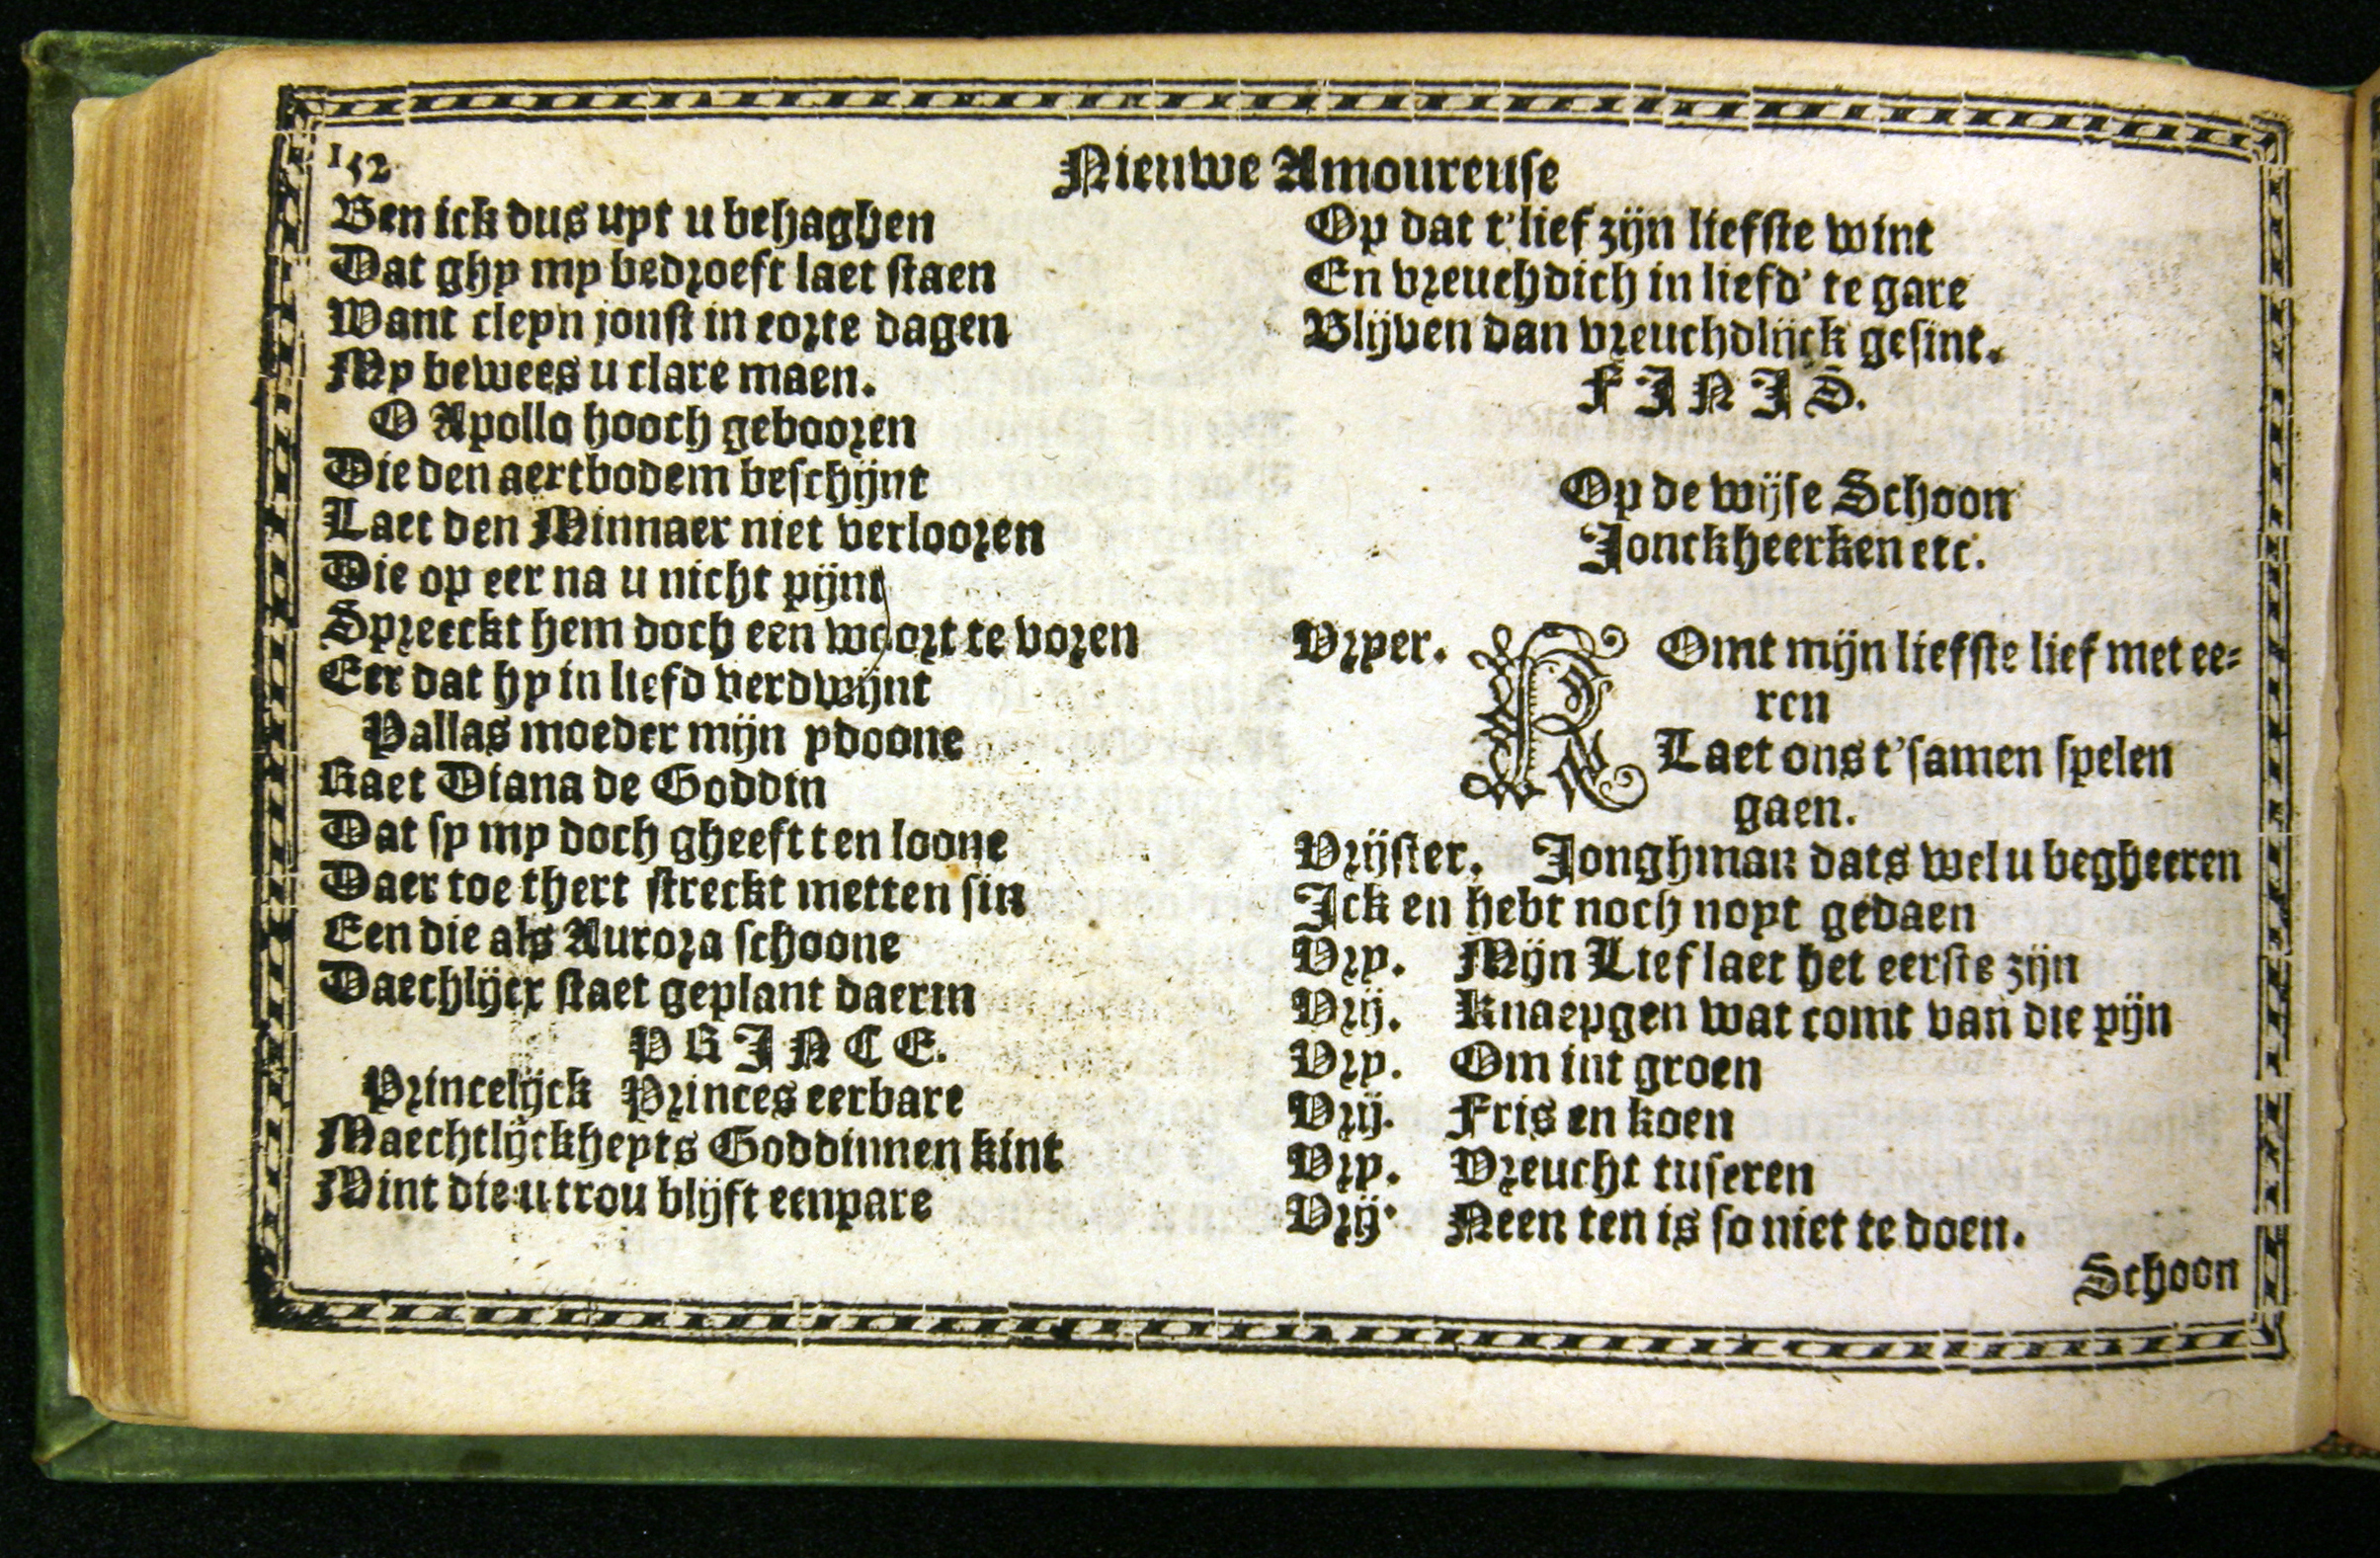 152
Nieuwe Amoureuse
Ben ick dus uyt u behaghen
Dat ghy my bedroeft laet staen
Want cleyn jonst in corte dagen
My bewees u clare maen.
O Apollo hooch gebooren
Die den aertbodem beschijnt
Laet den Minnaer niet verlooren
Die op eer na u nicht pijnt
Spreeckt hem doch een woort te voren
Eer dat hy in liefd verdwijnt
Pallas moeder mijn ydoone
Raet Diana de Goddin
Dat sy my doch gheeft ten loone
Daer toe thert streckt metten sin
Een die als Aurora schoone
Daechlijcx staet geplant daerin
PRINCE.
Princelijck Princes eerbare
Maechtlijckheyts Goddinnen kint
Mint die u trou blijft eenpare
Op dat t'lief zijn liefste wint
En vreuchdich in liefd' te gare
Blijven dan vreuchdlijck gesint.
FINIS.
Op de wijse Schoon
Jonckheerken etc.
Vryer. KOmt mijn liefste lief met ee=
ren
Laet ons t'samen spelen
gaen.
Vrijster. Jonghman dats wel u begheeren
Ick en hebt noch noyt gedaen
Vry. Mijn Lief laet het eerste zijn
Vrij. Knaepgen wat comt van die pijn
Vry. Om int groen
Vrij. Fris en koen
Vry. Vreucht tuseren
Vrij. Neen ten is so niet te doen.
Schoon